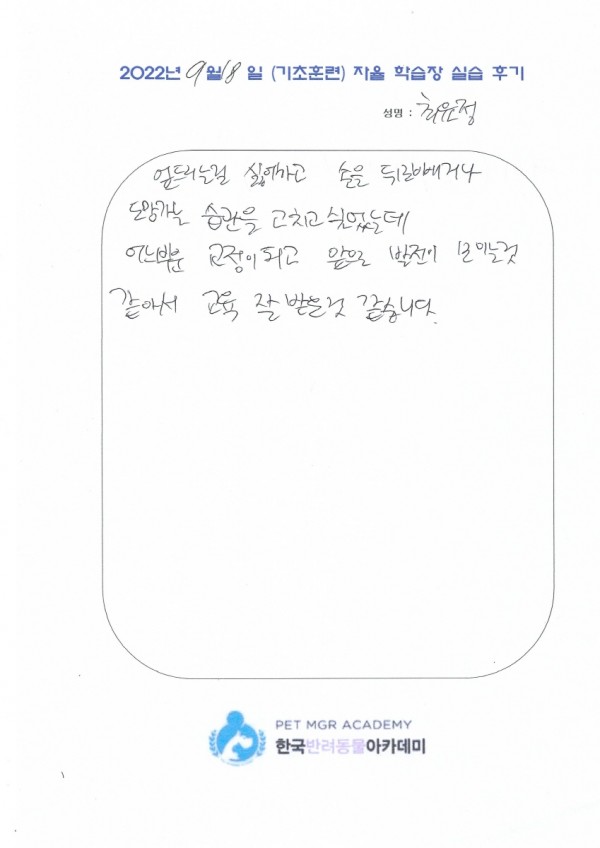 2022년 9월 18일 (기초훈련) 자율 학습장 실습 후기
성명 : 최윤정
엎드리는걸 싫어하고 손을 뒤로빼거나
도망가는 습관을 고치고 싶었는데
어느부분 교정이 되고 앞으로 발전이 보이는것
같아서 교육 잘 받은것 같습니다.
PET MGR ACADEMY
한국반려동물아카데미